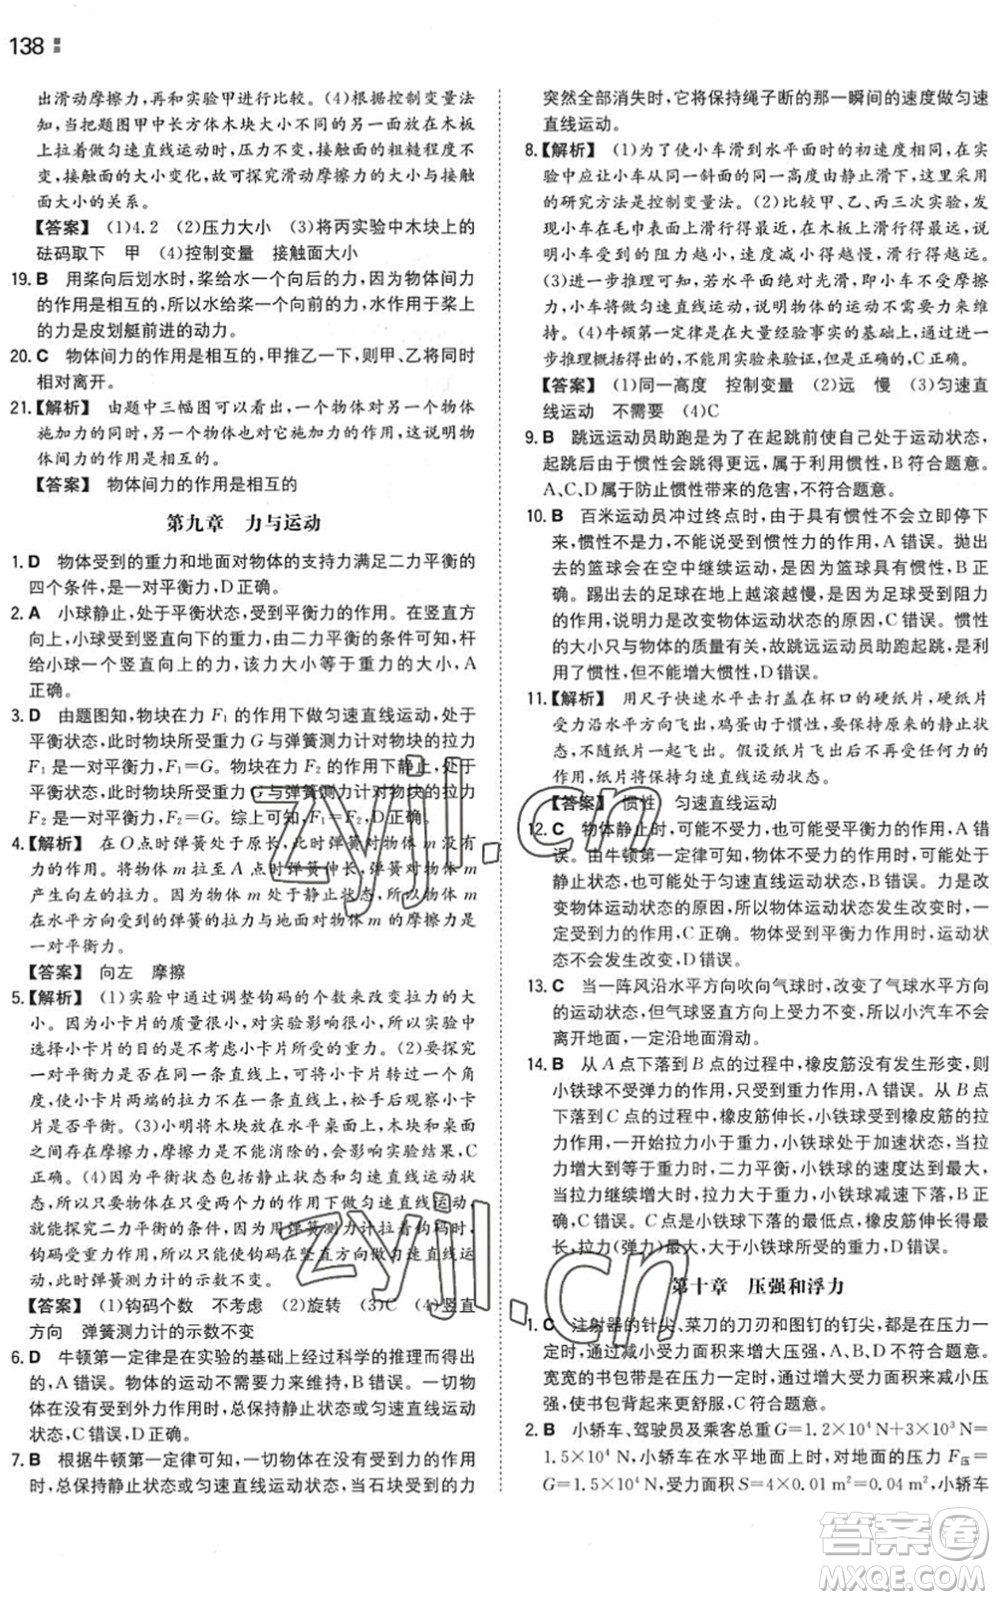 138
出滑动摩擦力，再和实验甲进行比较。(4)根据控制变量法
知，当把题图甲中长方体木块大小不同的另一面放在木板
上拉着做匀速直线运动时，压力不变，接触面的粗糙程度不
变，接触面的大小变化，故可探究滑动摩擦力大小与接触
面大小的关系。
【答案】 (1)4.2 (2)压力大小 (3)将丙实验中木块上的
砝码取下 甲 (4)控制变量 接触面大小
19. B 用桨向后划水时，桨给水一个向后的力，因为物体间力
的作用是相互的，所以水给桨一个向前的力，水作用于桨上
的力是皮划艇前进的动力。
20. C 物体间力的作用是相互的，甲推乙一下，则甲、乙将同时
相对离开。
21.【解析】 由题中三幅图可以看出，一个物体对另一个物体
施加力的同时，另一个物体也对它施加力的作用，这说明物
体间力的作用是相互的。
【答案】 物体间力的作用是相互的
第九章 力与运动
1. D 物体受到的重力和地面对物体的支持力满足二力平衡的
四个条件，是一对平衡力，D正确。
2. A 小球静止，处于平衡状态，受到平衡力的作用。在竖直方
向上，小球受到竖直向下的重力，由二力平衡的条件可知，杆
给小球一个竖直向上的力，该力大小等于重力的大小，A
正确。
3. D 由题图知，物块在力 F₁ 的作用下做匀速直线运动，处于
平衡状态，此时物块所受重力 G 与弹簧测力计对物块的拉力
F₁ 是一对平衡力，F₁＝G。物块在 F₂ 的作用下静止，处于平
衡状态，此时物块所受重力 G 与弹簧测力计对物块的拉力 F₂
是一对平衡力，F₂＝G。综上可知，F₁＝F₂＝G。
4.【解析】 在 O 点时弹簧处于原长，此时弹簧对物体 m 没有
力的作用。将物体 m 拉至 A 点，弹簧伸长，弹簧对物体 m
产生向左的拉力。因为物体 m 处于静止状态，所以物体 m
在水平方向受到的弹簧的拉力与地面对物体 m 的摩擦力是
一对平衡力。
【答案】 向左 摩擦
5.【解析】 (1)实验中通过调整钩码的个数来改变拉力的大
小。因为小卡片的质量很小，对实验影响很小，所以实验中
选择小卡片的目的是不考虑小卡片所受的重力。(2)要探究
一对平衡力是否在同一条直线上，可将小卡片转过一个角
度，使小卡片两端的拉力不在一条直线上，松手后观察小卡片
是否平衡。(3)小明将木块放在水平桌面上，木块和桌面
之间有摩擦，且摩擦力不能消除，所以会影响实验结果，C
正确。(4)因为平衡状态包括静止状态和匀速直线运动状
态，只要物体在只受两个力的作用下做匀速直线运动，
就能探究二力平衡的条件，用弹簧测力计拉着钩码时，
钩码受重力作用，同时受到弹簧测力计的拉力作用，
由于两个力平衡，所以钩码在竖直方向做匀速直线运动，
此时弹簧测力计的示数不变。
【答案】 (1)钩码个数 不考虑 (2)旋转 (3)C (4)竖直
方向 弹簧测力计的示数不变
6. D 牛顿第一定律是在实验的基础上经过科学的推理而得出
的，A错误。物体的运动不需要力来维持，B错误。一切物体
在没有受到外力作用时，总保持静止状态或匀速直线运动状
态，C错误，D正确。
7. B 根据牛顿第一定律可知，一切物体在没有受到力的作用
时，总保持静止状态或匀速直线运动状态，当石块受到的力
突然全部消失时，它将保持绳子断的那一瞬间的速度做匀速
直线运动。
8.【解析】 (1)为了使小车滑到水平面时的初速度相同，在实
验中应让小车从同一斜面的同一高度由静止滑下，这里采用
的研究方法是控制变量法。(2)比较甲、乙、丙三次实验，发
现小车在毛巾表面上滑行得最近，在木板上滑行得最远，说
明小车受到的阻力越小，速度减小得越慢，滑行得越远。
(3)进一步推理可知，若水平面绝对光滑，即小车不受阻
力，小车将做匀速直线运动，说明物体的运动不需要力来维
持。(4)牛顿第一定律是在大量经验事实的基础上，用进一
步推理概括得出的，不能用实验来验证，但是正确的，C正确。
【答案】 (1)同一高度 控制变量 (2)远 慢 (3)匀速直
线运动 不需要 (4)C
9. B 跳远运动员助跑是为了在起跳前使自己处于运动状态，
起跳后由于惯性会跳得更远，属于利用惯性，B符合题意。
A、C、D属于防止惯性带来的危害，不符合题意。
10. B 百米运动员冲过终点时，由于具有惯性不会立即停下
来，惯性不是力，不能说受到惯性力的作用，A错误。抛出
去的篮球会在空中继续运动，因为篮球具有惯性，B正
确。踢出去的足球在地上越滚越慢，是因为足球受到阻力
的作用，说明力是改变物体运动状态的原因，C错误。惯性
的大小只与物体的质量大小有关，故跳远运动员助跑起跳，是
利用了惯性，但不能增大惯性，D错误。
11.【解析】 用尺子快速水平击打盖在杯口的硬纸片，硬纸片
受力沿水平方向飞出，鸡蛋由于惯性，要保持原来的静止状
态，不随纸片一起飞出。假设纸片飞出后不再受任何力的
作用，纸片将保持匀速直线运动状态。
【答案】 惯性 匀速直线运动
12. C 物体静止时，可能不受力，也可能受平衡力的作用，A错
误。由牛顿第一定律可知，物体不受力的作用时，可能处于
静止状态，也可能处于匀速直线运动状态，B错误。力是改
变物体运动状态的原因，所以物体运动状态发生改变时，一
定受到力的作用，C正确。物体受到平衡力作用时，运动状态
不会发生改变，D错误。
13. C 当一阵风沿水平方向吹向气球时，改变了气球水平方向
的运动状态，但气球竖直方向上受力不变，所以小汽车不会
离开地面，一定沿地面滑动。
14. B 从 A 点下落到 B 点的过程中，橡皮筋没有发生形变，则
小铁球不受弹力的作用，只受到重力的作用，A错误。从 B点
下落到 C 点的过程中，橡皮筋伸长，小铁球受到橡皮筋的拉
力作用，一开始拉力小于重力，小铁球处于加速状态，当拉力
增大到等于重力时，二力平衡，小铁球的速度达到最大，
当拉力继续增大时，拉力大于重力，小铁球减速下落，B正
确，C错误。C 点是小铁球下落的最低点，橡皮筋伸长得最
长，拉力(弹力)最大，大于小铁球所受的重力，D错误。
第十章 压强和浮力
1. C 注射器的针尖、菜刀的刀刃和图钉的钉尖，都是在压力一
定时，通过减小受力面积来增大压强，A、B、D不符合题意。
宽宽的书包带是在压力一定时，通过增大受力面积来减小压
强，使书包背起来更舒服，C符合题意。
2. B 小轿车、驾驶员及乘客总重 G＝1.2×10⁴ N＋3×10³ N＝
1.5×10⁴ N，小轿车在水平地面上时，对地面的压力 F压＝
G＝1.5×10⁴ N，受力面积 S＝4×0.01 m²＝0.04 m²，小轿车
zyjl.cn
zyjl.cn
答案圈
MXQE.COM